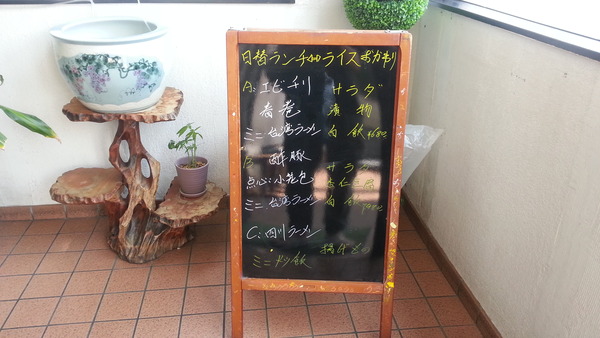 日替ランチ ライスおかわり
A: エビチリ サラダ
春巻 漬物
ミニ台湾ラーメン 白飯
B: 酢豚 サラダ
点心: 小籠包 杏仁豆腐
ミニ台湾ラーメン 白飯
C: 四川ラーメン
ミニ炒飯 揚げもの